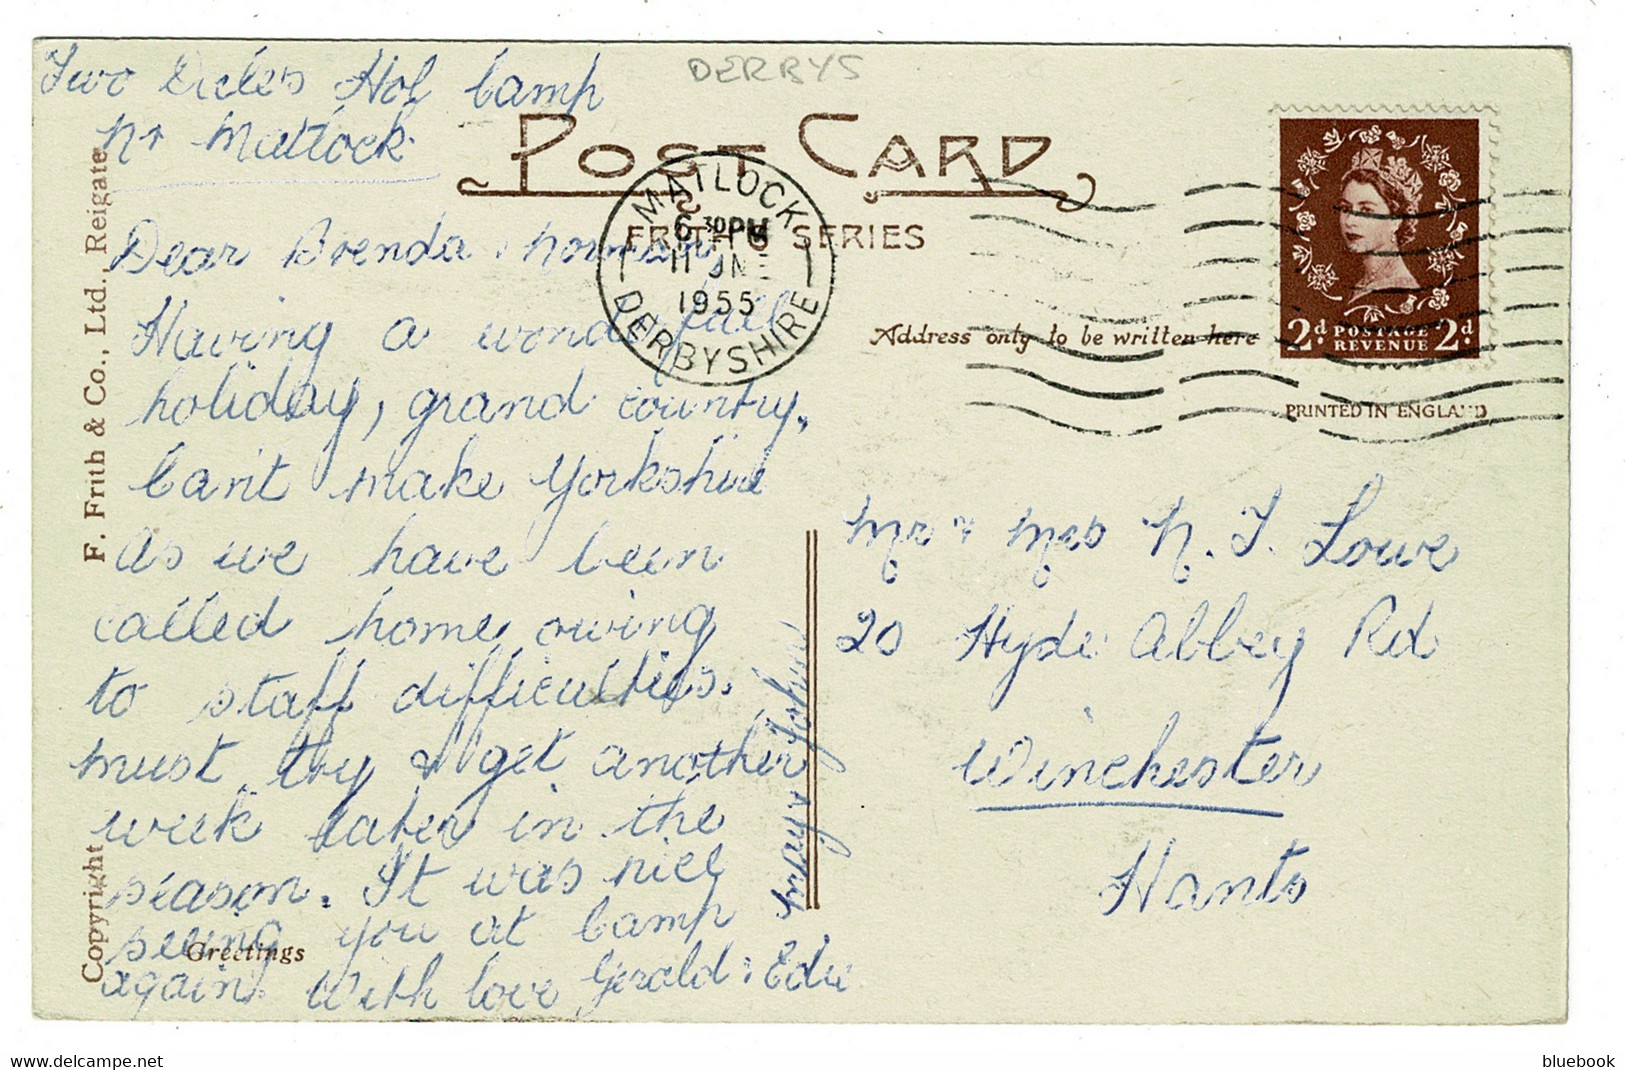 Two Dales Hol Camp
Nr Matlock
DERBYS
POST CARD
FRITH'S SERIES
MATLOCK
6 30 PM
11 JNE
1955
DERBYSHIRE
Address only to be written here
2d POSTAGE 2d
REVENUE
PRINTED IN ENGLAND
F. Frith & Co., Ltd., Reigate
Copyright
Greetings
Dear Brenda & Norman,
Having a wonderfull
holiday, grand country,
Can't make Yorkshire
as we have been
called home owing
to staff difficulties.
must try & get another
week later in the
season. It was nice
seeing you at Camp
again. With love Gerald & Edie
Mr & Mrs N. J. Lowe
20 Hyde Abbey Rd
Winchester
Hants